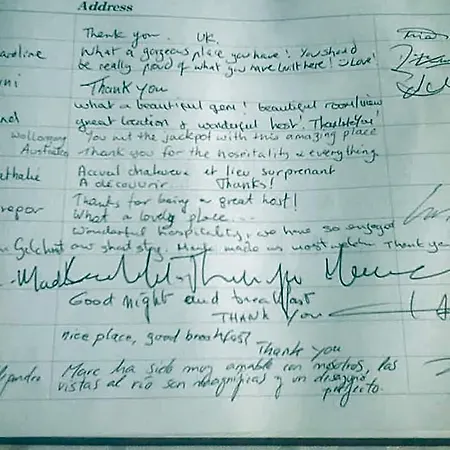 Address
Thank you. UK.
aroline What a gorgeous place you have! You should
be really proud of what you have built here! Love!
ini Thank you
what a beautiful gem! beautiful room/view
nd great location & wonderful host! Thank You!
Wollongong You hit the jackpot with this amazing place
Australia Thank you for the hospitality & everything.
athalie Accueil chaleureux et lieu surprenant
A découvrir... Thanks!
Thanks for being a great host!
What a lovely place...
Wonderful hospitality, we have so enjoyed
Gilchrist our short stay. Mark made us most welcome Thank you
Good night and breakfast
THANK You
nice place, good breakfast
Thank you
Marc ha sido muy amable con nosotros, las
vistas al río son magníficas y un desayuno
perfecto.